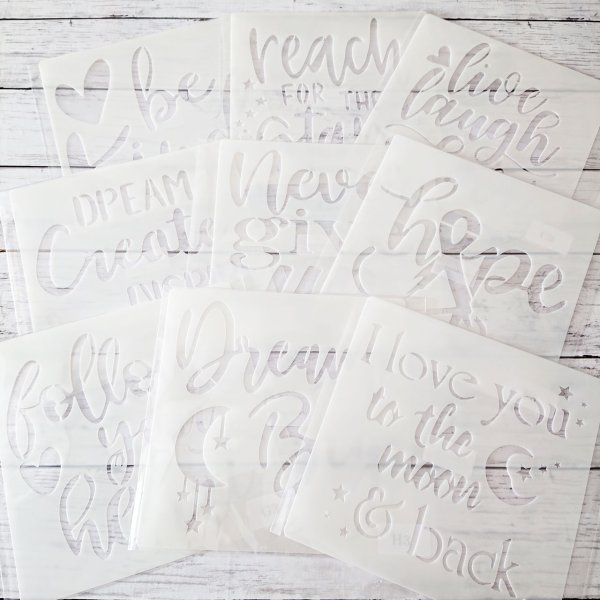 be
reach
FOR THE
live
laugh
DREAM
Create
Never
giv
hope
follo
yo
he
Drea
B
I love you
to the
moon
& back